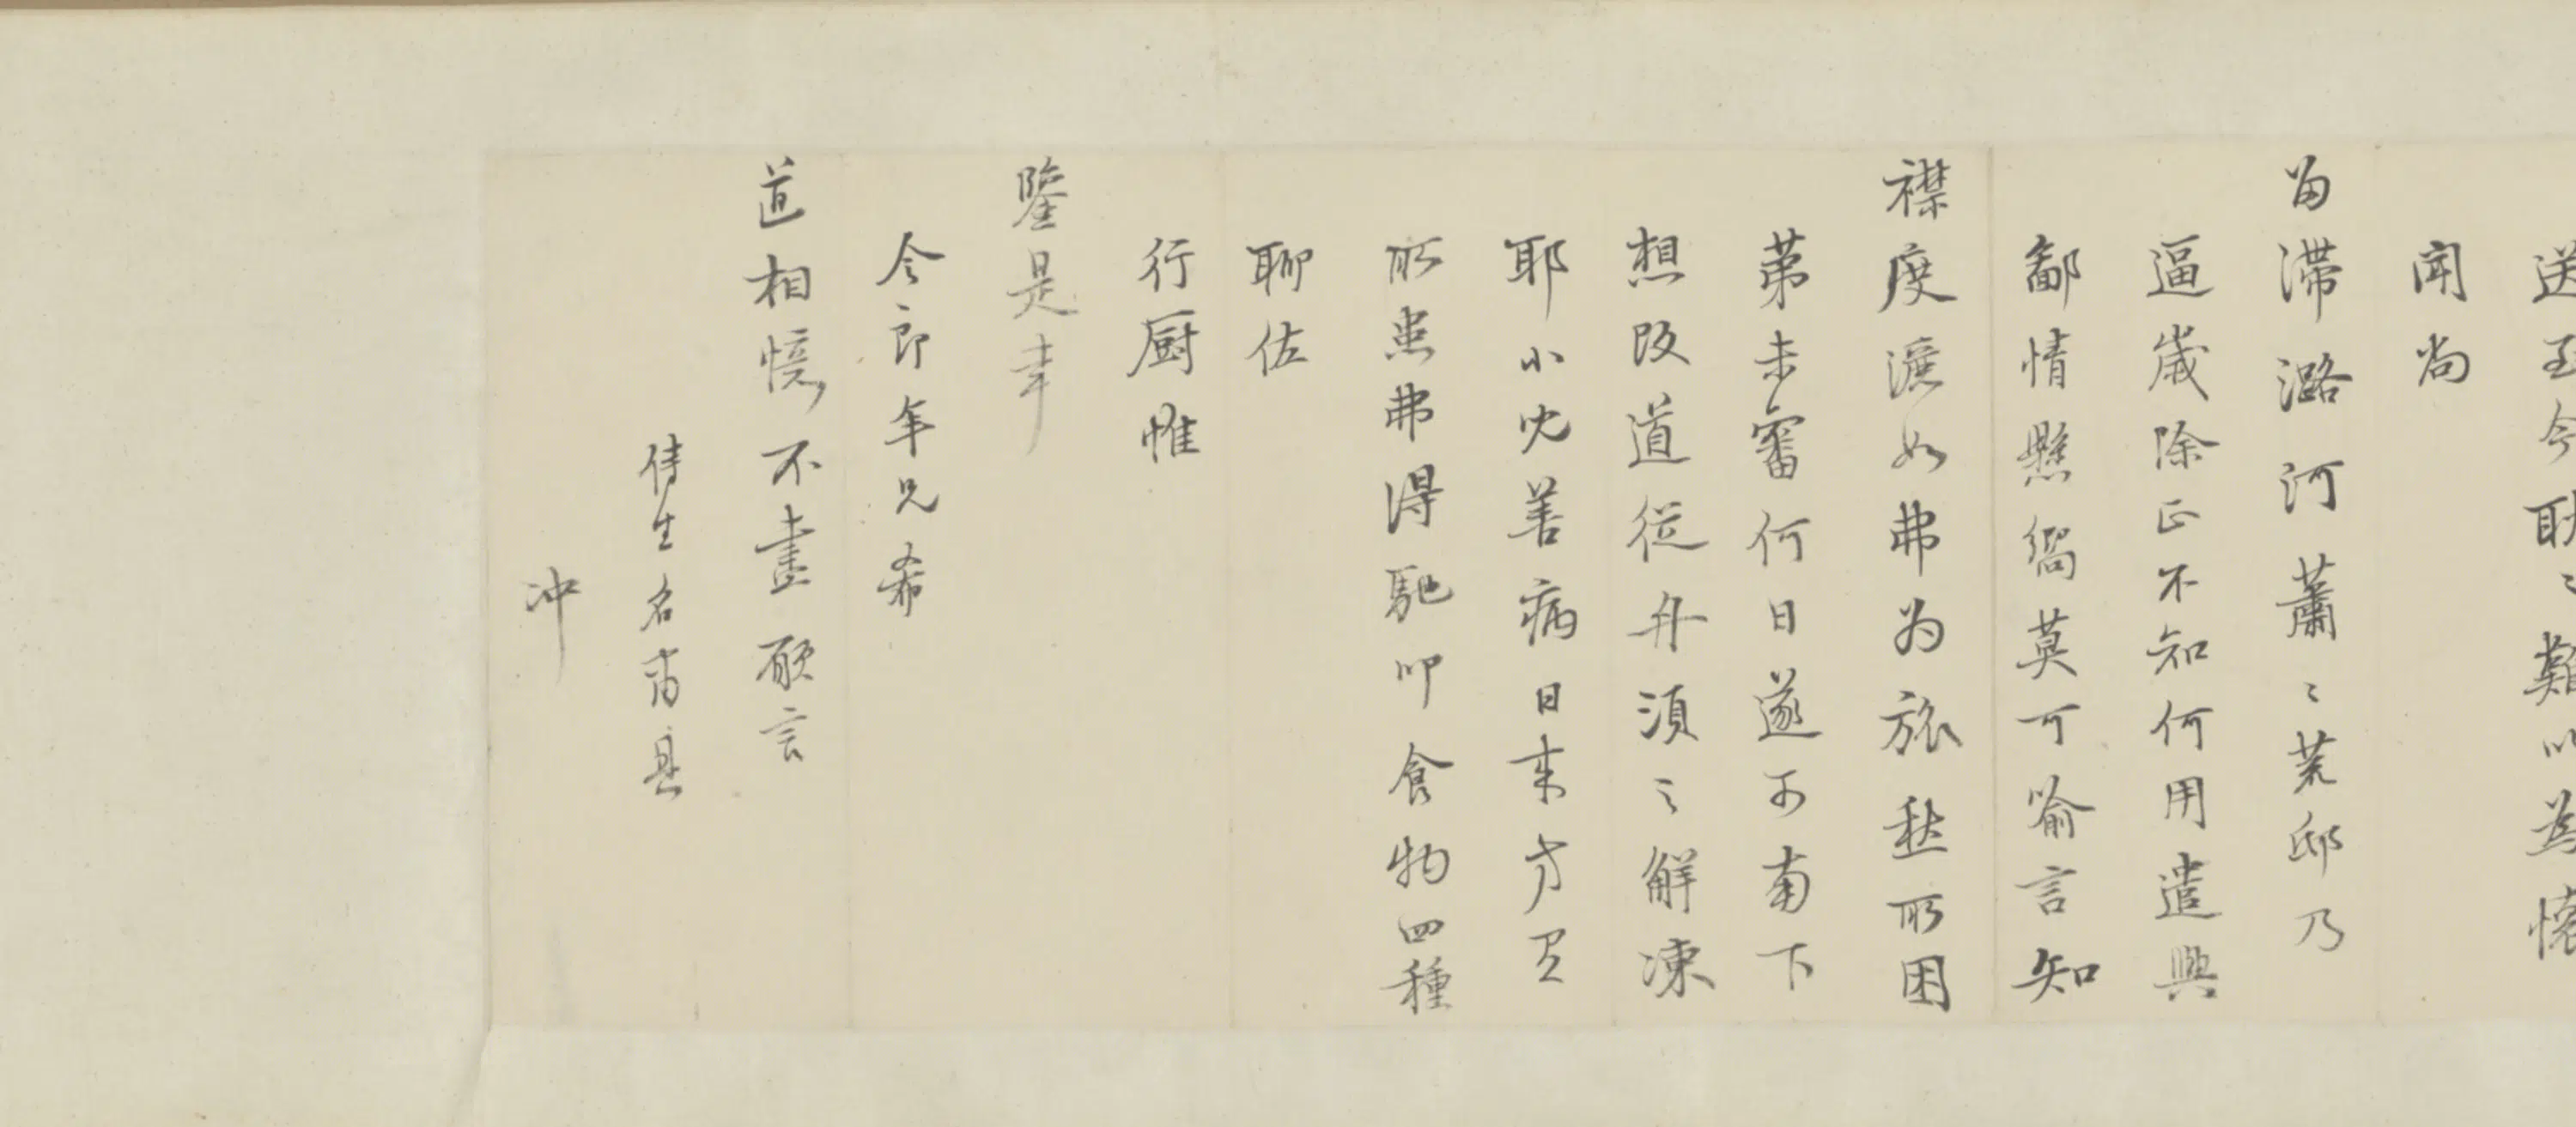 送至今耿〻難以為懷
聞尚
留滯潞河蕭〻荒邸乃
逼歲除正不知何用遣興
鄙情懸縐莫可喻言知
襟度灑如弗為旅愁所困
第未審何日遂可南下
想改道從舟須之解凍
耶小兒善病日來方以
所患弗得馳叩食物四種
聊佐
行廚惟
鑒是幸
令郎年兄希
道相憶不盡欲言
侍生名甫具
冲